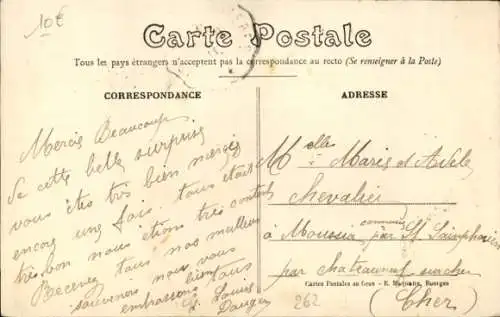 10€
Carte Postale
Tous les pays étrangers n'acceptent pas la correspondance au recto (Se renseigner à la Poste)
CORRESPONDANCE
Mercis Beaucoup
de cette belle surprise
vous êtes très bien mercis
encore une fois. tous était
très bon nous étions très contents
Recevez tous nos meilleurs
souvenirs nous vous
embrassons bien tous
Louis
ADRESSE
Melle Maris et Adele
chevalier
à commune par St
par chateauneuf sur cher
(Cher)
Cartes Postales au Gros - E. Bourges
262